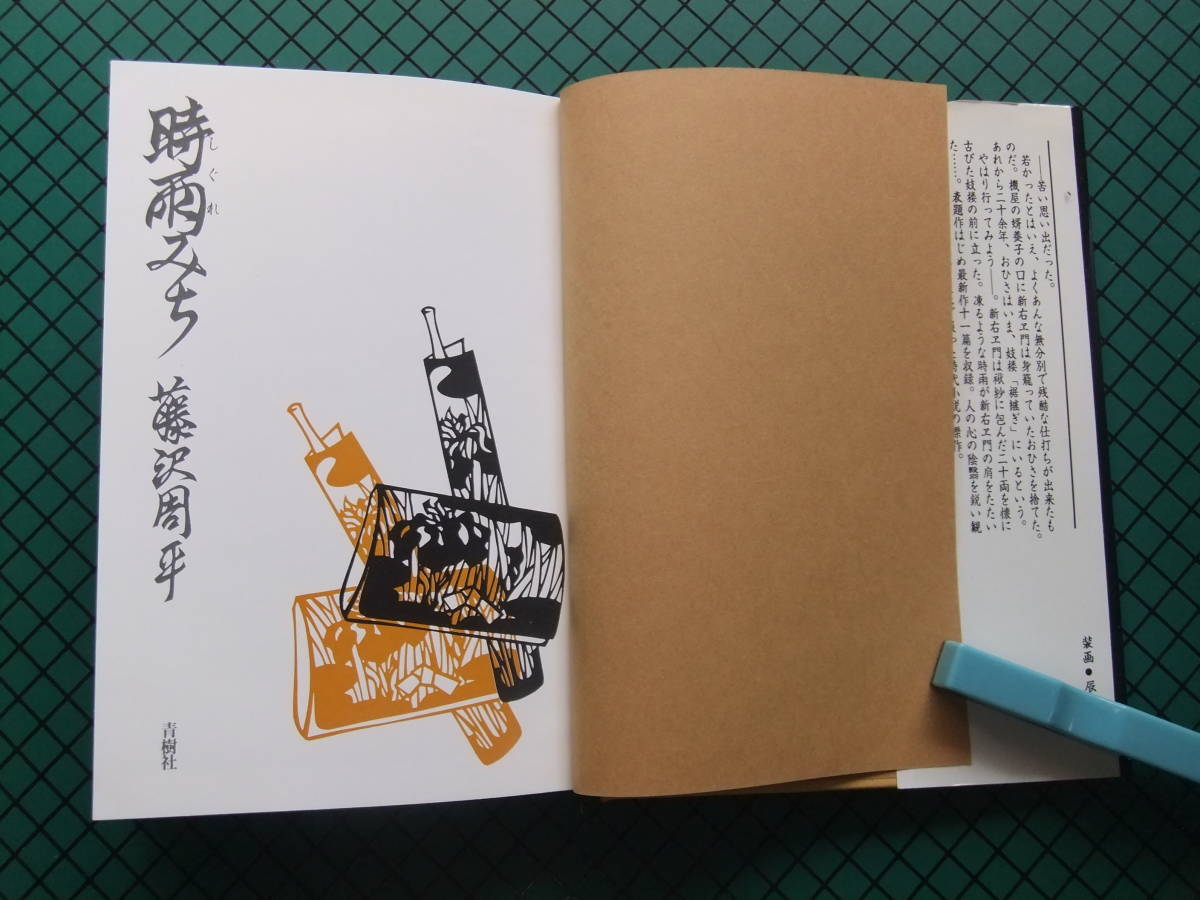 時雨みち
しぐれ
藤沢周平
青樹社
――苦い思い出だった。
若かったとはいえ、よくあんな無分別で残酷な仕打ちが出来たも
のだ。機屋の婿養子の口に新右ヱ門は身籠っていたおひさを捨てた。
あれから二十余年、おひさはいま、妓楼「裾継ぎ」にいるという。
やはり行ってみよう――。新右ヱ門は袱紗に包んだ二十両を懐に
古びた妓楼の前に立った。凍るような時雨が新右ヱ門の肩をたたい
た……。表題作はじめ最新作十一篇を収録。人の心の陰翳を鋭い観
時代小説の傑作。
装画●辰